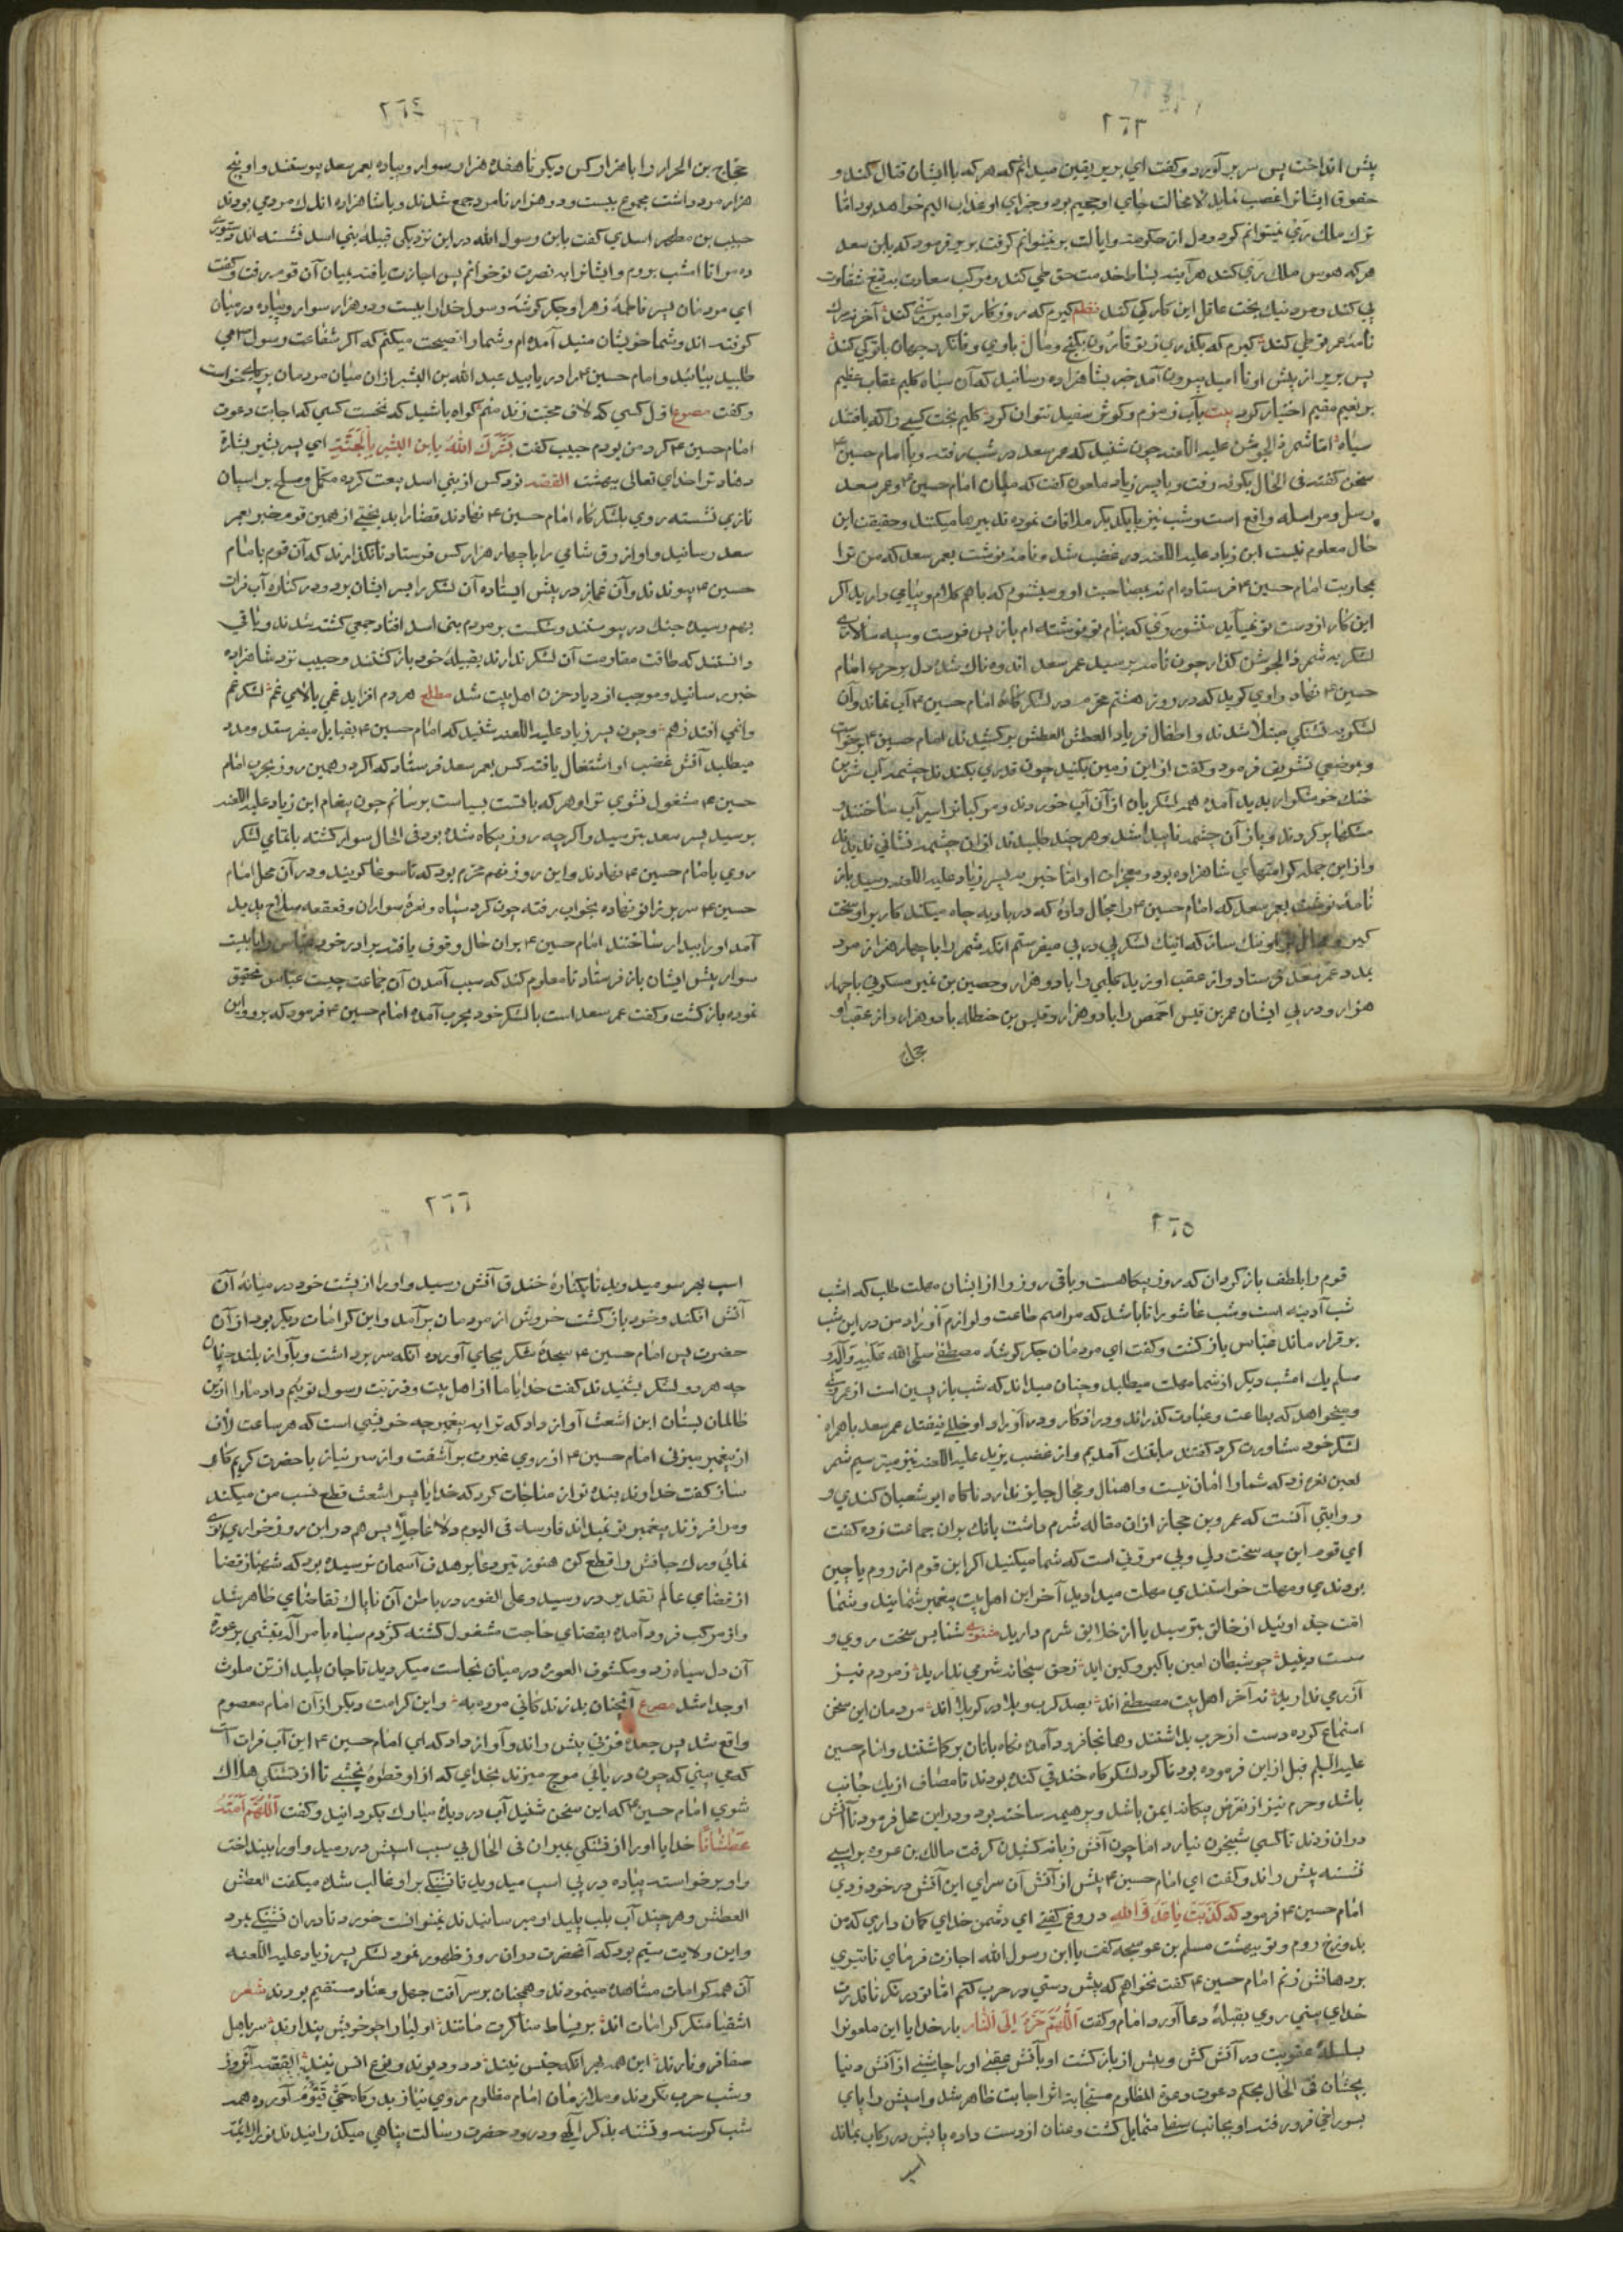 ٢٦٣
پیش انداخت پس سر برآورد و کفت ای بریر یقین میدانم که هر که با ایشان قتال کند و
حقوق ایشانرا غصب نماید لامحالت جای او جحیم بود و جزای او عذاب الیم خواهد بود اما
ترک ملک ری نمیتوانم کرد و دل از حکومت و ایالت بر نمیتوانم کرفت بریر فرمود که یابن سعد
هر که هوس ملک ری کند هرآینه بساط خدمت حق طی کند و مرکب سعادت به تیغ شقاوت
پی کند و مرد نیک بخت عاقل این کار کی کند نظم کیرم که روزکار ترا میر ری کند آخر نه مرک
نامه عمر تو طی کند کیرم که بکذری تو ز قارون بکنج و مال یاوی وفا نکرد جهان با تو کی کند
پس بریر از پیش او نا امید بیرون آمد خبر بشاهزاده رسانید که آن سیاه کلیم عقاب عظیم
بر نعیم مقیم اختیار کرد بیت بآب زمزم و کوثر سفید نتوان کرد کلیم بخت کسی را که بافتند
سیاه اما شمر ذالجوشن علیه اللعنه چون شنید که عمر سعد در شب رفته و با امام حسین ع
سخن کفته فی الحال بکوفه رفت و با پسر زیاد ملعون کفت که میان امام حسین ع و عمر سعد
رسل و مراسله واقع است و شب نیز با یکدیکر ملاقات نموده تدبیرها میکنند و حقیقت این
حال معلوم نیست ابن زیاد علیه اللعنه در غضب شد و نامه نوشت بعمر سعد که من ترا
بمحاربت امام حسین ع فرستاده ام نه بمصاحبت او و میشنوم که باهم کلام و پیامی دارید اکر
این کار از دست تو نمیآید منشور ری که بنام تو نوشته ام باز پس فرست و سپه سالاری
لشکر به شمر ذالجوشن کذار چون نامه برسید عمر سعد اندوه ناک شده دل بر حرب امام
حسین ع نهاد و راوی کوید که در روز هشتم محرم در لشکرکاه امام حسین ع آب نماند و آن
لشکر به تشنکی مبتلا شدند و اطفال فریاد العطش العطش برکشیدند امام حسین ع برخواست
و بموضعی تشریف فرمود و کفت از این زمین بکنید چون قدری بکندند چشمه آب شیرین
خنک خوشکوار پدید آمد همه لشکریان از آن آب خوردند و مرکبانرا سیرآب ساختند
مشکها پر کردند و باز آن چشمه ناپیدا شد و هر چند طلبیدند از آن چشمه نشانی ندیدند
و از این جمله کرامتهای شاهزاده بود و معجزات او اما خبر به پسر زیاد علیه اللعنه رسید باز
نامه نوشت بعمر سعد که امام حسین ع را مجال داده که در بادیه چاه میکند کار بر او سخت
کیر و مجال بر او تنک ساز که اینک لشکر پی در پی میفرستم آنکه شمر را با چهار هزار مرد
بمدد عمر سعد فرستاد و از عقب او یزید کلبی را با دو هزار و حصین بن نمیر سکونی با چهار
هزار و در پی ایشان عمر بن قیس احمص را با دو هزار و قیس بن حنظله با دو هزار و از عقب او
حجاج
٢٦٤
حجاج بن الحرار را با هزار کس دیکر تا هفده هزار سوار و پیاده بعمر سعد پیوستند و او پنج
هزار مرد داشت مجموع بیست و دو هزار نامرد جمع شدند و با شاهزاده اندک مردمی بودند
حبیب بن مطهر اسدی کفت یابن رسول الله در این نزدیکی قبیله بنی اسد نشسته اند دستوری
ده مرا تا امشب بروم و ایشانرا به نصرت تو خوانم پس اجازت یافته بمیان آن قوم رفت و کفت
ای مردمان پسر فاطمه زهرا و جکر کوشه رسول خدا را بیست و دو هزار سوار و پیاده در میان
کرفته اند و شما خویشان منید آمده ام و شما را نصیحت میکنم که اکر شفاعت رسول می
طلبید بیائید و امام حسین ع را دریابید عبد الله بن البشیر از ان میان مردمان بر پای خواست
و کفت مصرع اول کسی که لاف محبت زند منم کواه باشید که نخست کسی که اجابت دعوت
امام حسین ع کرد من بودم حبیب کفت بَشَّرَكَ اللهُ یابن البشیر بِالْجَنَّةِ ای پسر بشیر بشارت
دهاد ترا خدای تعالی ببهشت القصه نود کس از بنی اسد بیعت کرده مکمل و مسلح بر اسپان
تازی نشسته روی بلشکرکاه امام حسین ع نهادند قضا را بدبختی از همین قوم خبر بعمر
سعد رسانید و او ازرق شامی را با چهار هزار کس فرستاد تا نکذارند که آن قوم با امام
حسین ع پیوندند و آن غماز در پیش ایستاده آن لشکر را بسر ایشان برد و در کناره آب فرات
بهم رسیده جنک در پیوستند و شکست بر مردم بنی اسد افتاد جمعی کشته شدند و باقی
دانستند که طاقت مقاومت آن لشکر ندارند بقبیله خود بازکشتند و حبیب نزد شاهزاده
خبر رسانید و موجب ازدیاد حزن اهل بیت شد مطلع هر دم افزاید غمی بالای غم لشکر غم
وا نمی افتد ز هم و چون پسر زیاد علیه اللعنه شنید که امام حسین ع بقبایل میفرستد و مدد
میطلبد آتش غضب او اشتعال یافته کس بعمر سعد فرستاد که اکر در همین روز بحرب امام
حسین ع مشغول نشوی ترا و هر که با تست بسیاست برسانم چون پیغام ابن زیاد علیه اللعنه
برسید پسر سعد بترسید و اکرچه روز بیکاه شده بود فی الحال سوار کشته با تمامی لشکر
روی بامام حسین ع نهادند و این روز نهم محرم بود که تاسوعا کویند و در آن محل امام
حسین ع سر بر زانو نهاده بخواب رفته چون کرد سپاه و نعره سواران و قعقعه سلاح پدید
آمد او را بیدار ساختند امام حسین ع بر ان حال وقوف یافته برادر خود عباس را با بیست
سوار پیش ایشان باز فرستاد تا معلوم کند که سبب آمدن آن جماعت چیست عباس تحقیق
نموده بازکشت و کفت عمر سعد است با لشکر خود بحرب آمده امام حسین ع فرمود که برو و این
٢٦٥
قوم را بلطف بازکردان که روز بیکاهست و باقی روز را از ایشان مهلت طلب که امشب
شب آدینه است و شب عاشورا تا باشد که مراسم طاعت و لوازم اوراد من در این شب
برقرار ماند عباس بازکشت و کفت ای مردمان جکر کوشه مصطفی صلی الله علیه وآله و
سلم یک امشب دیکر از شما مهلت میطلبد و چنان میداند که شب بازپسین است از عمر وی
و میخواهد که بطاعت و عبادت کذراند و در اذکار و در اوراد او خللی نیفتد عمر سعد با همراه
لشکر خود مشاورت کرد کفتند ما بتنک آمدیم و از غضب یزید علیه اللعنه نیز میترسیم شمر
لعین نعره زد که شما را امان نیست و اهمال و مجال جایز ندارد ناکاه ابو شعبان کندی و
روایتی آنست که عمرو بن حجاز از ان مقاله شرم داشت بانک بر ان جماعت زده کفت
ای قوم این چه سخت دلی و بی مروتی است که شما میکنید اکر این قوم از روم یا چین
بودندی و مهلت خواستندی مهلت میدادید آخر این اهل بیت پیغمبر شمایند و شما
امت جد اوئید از خالق بترسید یا از خلایق شرم دارید مثنوی شما بس سخت روی و
سست دینید چو شیطان لعین با کبر و کین اید ز حق سبحانه شرمی ندارید ز مردم نیز
آزرمی ندارید نه آخر اهل بیت مصطفی اند بصد کرب و بلا در کربلا اند مردمان این سخن
استماع کرده دست از حرب بداشتند و همانجا فرود آمده نکاه بانان برکماشتند و امام حسین
علیه السلم قبل از این فرموده بود تا کرد لشکرکاه خندقی کنده بودند تا مصاف از یک جانب
باشد و حرم نیز از تعرض بیکانه ایمن باشد و پر هیمه ساخته بود و در این محل فرمود تا آتش
در ان زدند تا کسی شبیخون نیارد اما چون آتش زبانه کشیدن کرفت مالک بن عروه بر اسپی
نشسته پیش راند و کفت ای امام حسین ع پیش از آتش آن سرای این آتش در خود زدی
امام حسین ع فرمود که كَذَبْتَ يَا عَدُوَّ اللهِ دروغ کفتی ای دشمن خدای کمان داری که من
بدوزخ روم و تو ببهشت مسلم بن عوسجه کفت یا ابن رسول الله اجازت فرمای تا تیری
بر دهانش زنم امام حسین ع کفت نخواهم که پیش دستی در حرب کنم اما تو درنکر تا قدرت
خدای بینی روی بقبلۀ دعا آورد امام و کفت اَللّٰهُمَّ جُرَّهُ اِلَى النَّارِ بار خدایا این ملعونرا
بسلسله عقوبت در آتش کش و پیش از بازکشت او بآتش عقبی او را چاشنی از آتش دنیا
بچشان فی الحال بحکم دعوت دعوة المظلوم مستجابة اثر اجابت ظاهر شد و اسپش را پای
بسوراخی فرو رفته او بجانب سفل متمایل کشت و عنان از دست داده پایش در رکاب بماند
اسپ
٢٦٦
اسپ بهر سو میدوید تا بکناره خندق آتش رسید و او را از پشت خود در میانه آن
آتش افکند و خود بازکشت خروش از مردمان برآمد و این کرامات دیکر بود از آن
حضرت پس امام حسین ع سجدۀ شکر بجای آورده آنکه سر برداشت و بآواز بلند چنان
چه هر دو لشکر بشنیدند کفت خدایا ما از اهل بیت و ذریت رسول توییم داد ما را از این
ظالمان بستان ابن اشعث آواز داد که ترا به پیغمبر چه خویشی است که هر ساعت لاف
از پیغمبر میزنی امام حسین ع از روی غیرت برآشفت و از سر نیاز با حضرت کریم کار
ساز کفت خداوند بنده نواز مناجات کرد که خدایا پسر اشعث قطع نسب من میکند
و مرا فرزند پیغمبر تو نمیداند فارسه فی الیوم ذلا عاجلا پس هم در این روز خواری بوی
نمائی و رک جانش را قطع کن هنوز تیر دعا بر هدف آسمان نرسیده بود که شهباز قضا
از فضای عالم تقدیر در رسید و علی الفور در باطن آن ناپاک تقاضای ظاهر شد
و از مرکب فرود آمده بقضای حاجت مشغول کشته کژدم سیاه بامر اله نیشی بر عورة
آن دل سیاه زد و مکشوف العوره در میان نجاست میکردید تا جان پلید از تن ملوث
او جدا شد مصرع آنچنان بد زندکانی مرده به و این کرامت دیکر از آن امام معصوم
واقع شد پس جعده قرنی پیش راند و آواز داد که ای امام حسین ع این آب فرات است
که می بینی که چون دریائی موج میزند بخدای که از او قطرۀ نچشی تا از تشنکی هلاک
شوی امام حسین ع که این سخن شنید آب در دیدۀ مبارک بکردانید و کفت اَللّٰهُمَّ اَمِتْهُ
عَطْشَانًا خدایا او را از تشنکی بمیران فی الحال بی سبب اسپش در رمید و او را بینداخت
و او برخواسته پیاده در پی اسپ میدوید تا تشنکی بر او غالب شده میکفت العطش
العطش و هر چند آب بلب پلید او میرسانیدند نمیتوانست خورد تا در ان تشنکی بمرد
و این ولایت سیم بود که آنحضرت در ان روز ظهور نمود لشکر پسر زیاد علیه اللعنه
آن همه کرامات مشاهده مینمودند و همچنان بر سر آفت جهل و عناد مستقیم بودند شعر
اشقیا منکر کرامات اند بر بساط مناکرت ماتند اولیا را چو خویش پندارند سر باهل
صفا فرو نارند این همه بهر آنکه جنس نیند دد و دیوند و نوع انس نیند القصه آنروز
و شب حرب نکردند و ملازمان امام مظلوم روی نیاز بدرکاه حَیُّ قَیُّوم آورده همه
شب کرسنه و تشنه بذکر آلهی و درود حضرت رسالت پناهی میکذرانیدند نور الائمه